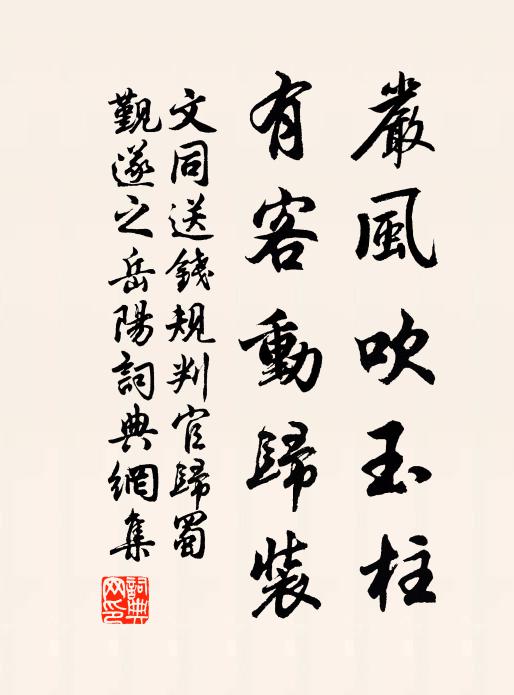 嚴風吹玉柱
有客動歸裝
文同送錢規判官歸蜀
觐遂之岳陽詞典網集
詞典網印